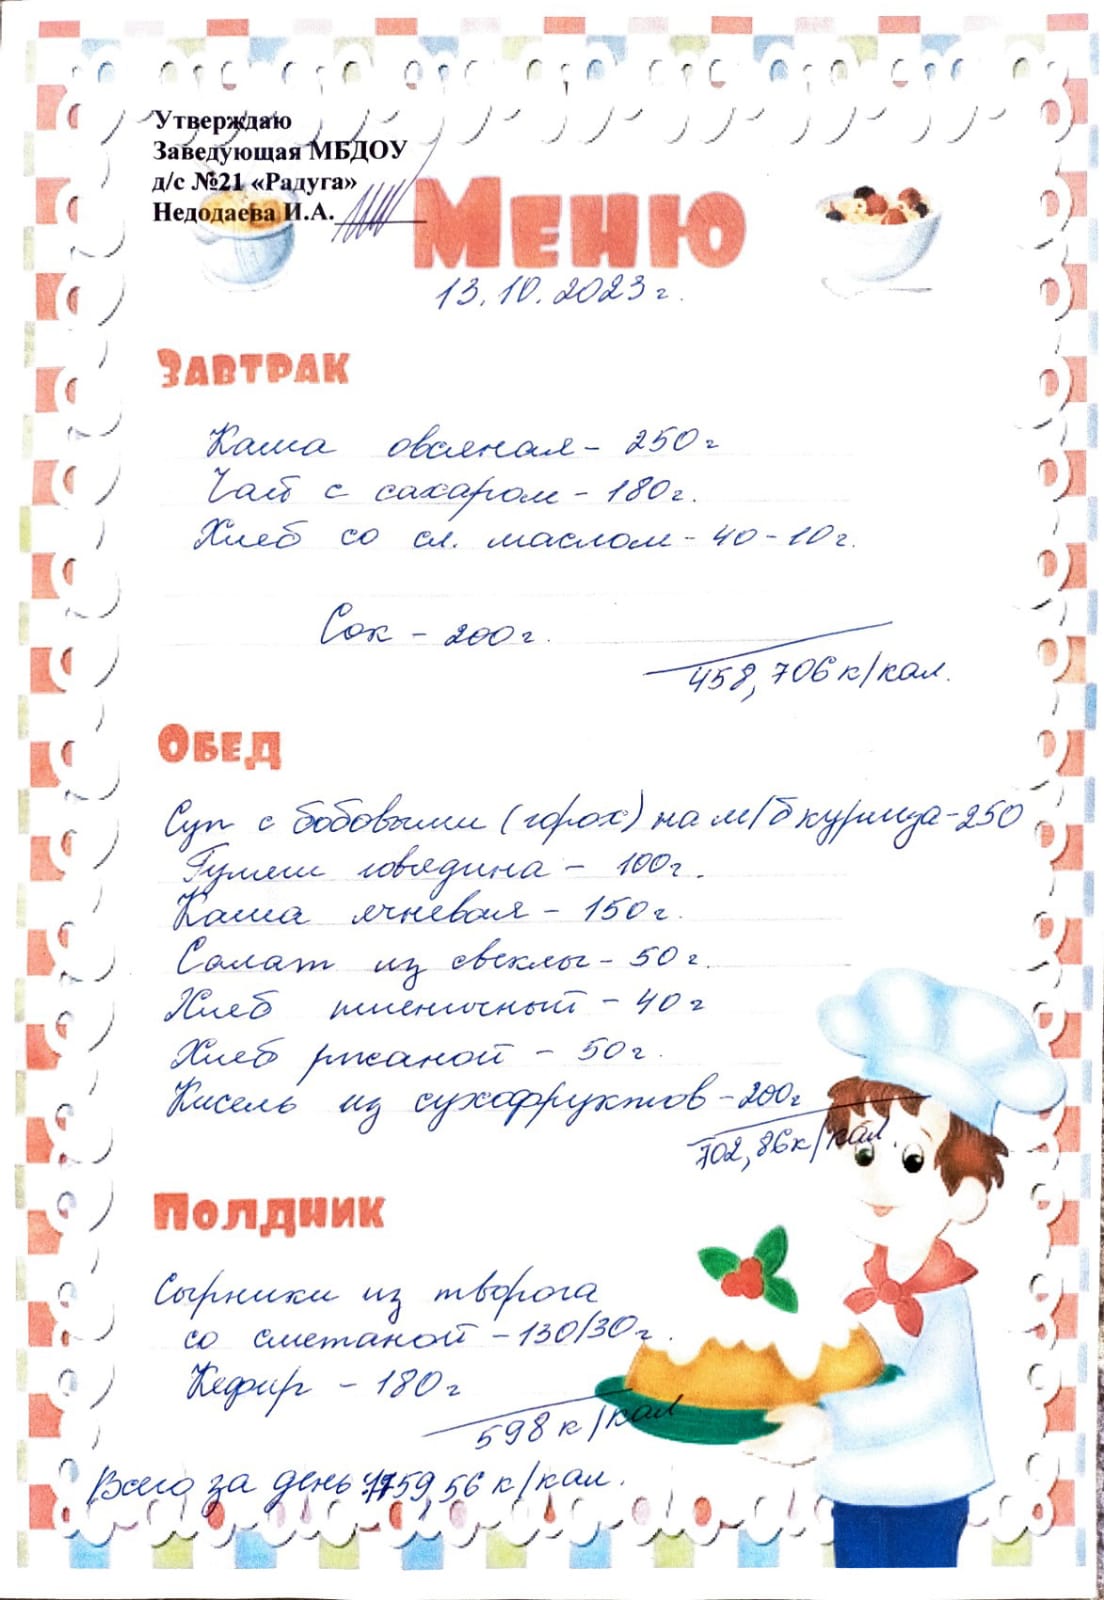 Утверждаю
Заведующая МБДОУ
д/с №21 «Радуга»
Недодаева И.А.
Меню
13.10.2023г.
Завтрак
Каша овсяная - 250г
Чай с сахаром - 180г.
Хлеб со сл. маслом - 40-10г.
Сок - 200г.
458,706 к/кал.
Обед
Суп с бобовыми (горох) на м/б курица - 250
Гуляш говядина - 100г.
Каша ячневая - 150г.
Салат из свеклы - 50г.
Хлеб пшеничный - 40г
Хлеб ржаной - 50г.
Кисель из сухофруктов - 200г
702,86 к/кал.
Полдник
Сырники из творога
со сметаной - 130/30г.
Кефир - 180г
598 к/кал
Всего за день 1759,56 к/кал.